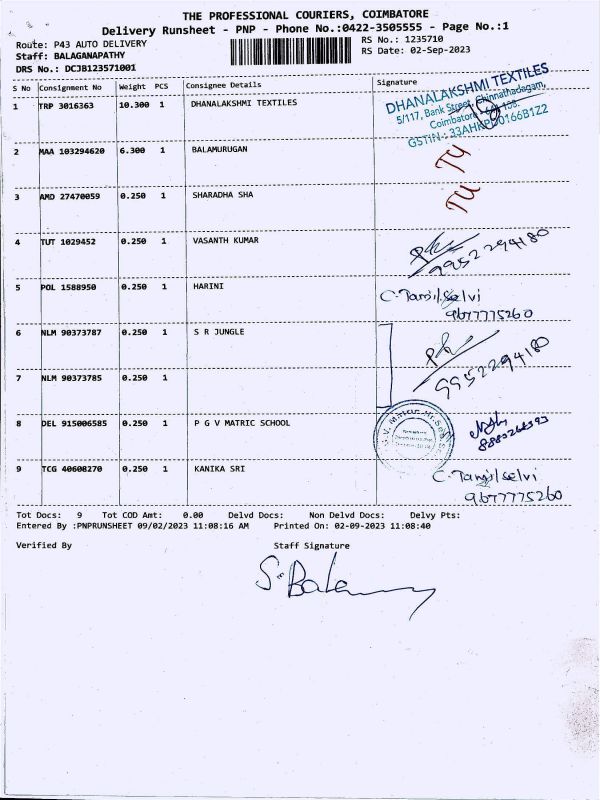 THE PROFESSIONAL COURIERS, COIMBATORE
Delivery Runsheet - PNP - Phone No.:0422-3505555 - Page No.:1
Route: P43 AUTO DELIVERY
RS No.: 1235710
Staff: BALAGANAPATHY
RS Date: 02-Sep-2023
DRS No.: DCJB123571001
S No Consignment No Weight PCS Consignee Details Signature
1 TRP 3016363 10.300 1 DHANALAKSHMI TEXTILES
DHANALAKSHMI TEXTILES
5/117, Bank Street, Chinnathadagam,
Coimbatore
2 MAA 103294620 6.300 1 BALAMURUGAN
3 AMD 27470059 0.250 1 SHARADHA SHA
4 TUT 1029452 0.250 1 VASANTH KUMAR
9952294180
5 POL 1588950 0.250 1 HARINI
C. Tamil Selvi
9677775260
6 NLM 90373787 0.250 1 S R JUNGLE
9952294180
7 NLM 90373785 0.250 1
8 DEL 915006585 0.250 1 P G V MATRIC SCHOOL
9 TCG 40608270 0.250 1 KANIKA SRI
C. Tamil selvi
9677775260
Tot Docs: 9 Tot COD Amt: 0.00 Delvd Docs: Non Delvd Docs: Delvy Pts:
Entered By :PNPRUNSHEET 09/02/2023 11:08:16 AM Printed On: 02-09-2023 11:08:40
Verified By Staff Signature